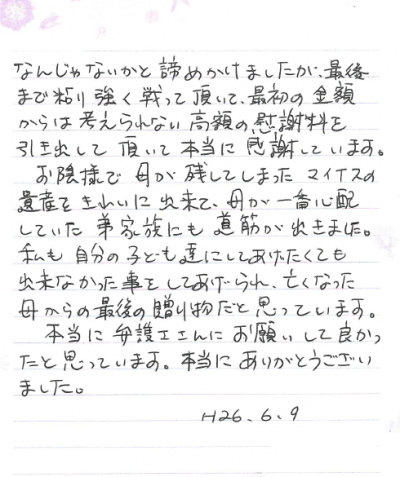 なんじゃないかと諦めかけましたが、最後
まで粘り強く戦って頂いて、最初の金額
からは考えられない高額の慰謝料を
引き出して頂いて本当に感謝しています。
お陰様で母が残してしまったマイナスの
遺産をきれいに出来て、母が一番心配
していた弟家族にも道筋が出きました。
私も自分の子ども達にしてあげたくても
出来なかった事をしてあげられ、亡くなった
母からの最後の贈り物だと思っています。
本当に弁護士さんにお願いして良かっ
たと思っています。本当にありがとうござい
ました。
H26.6.9